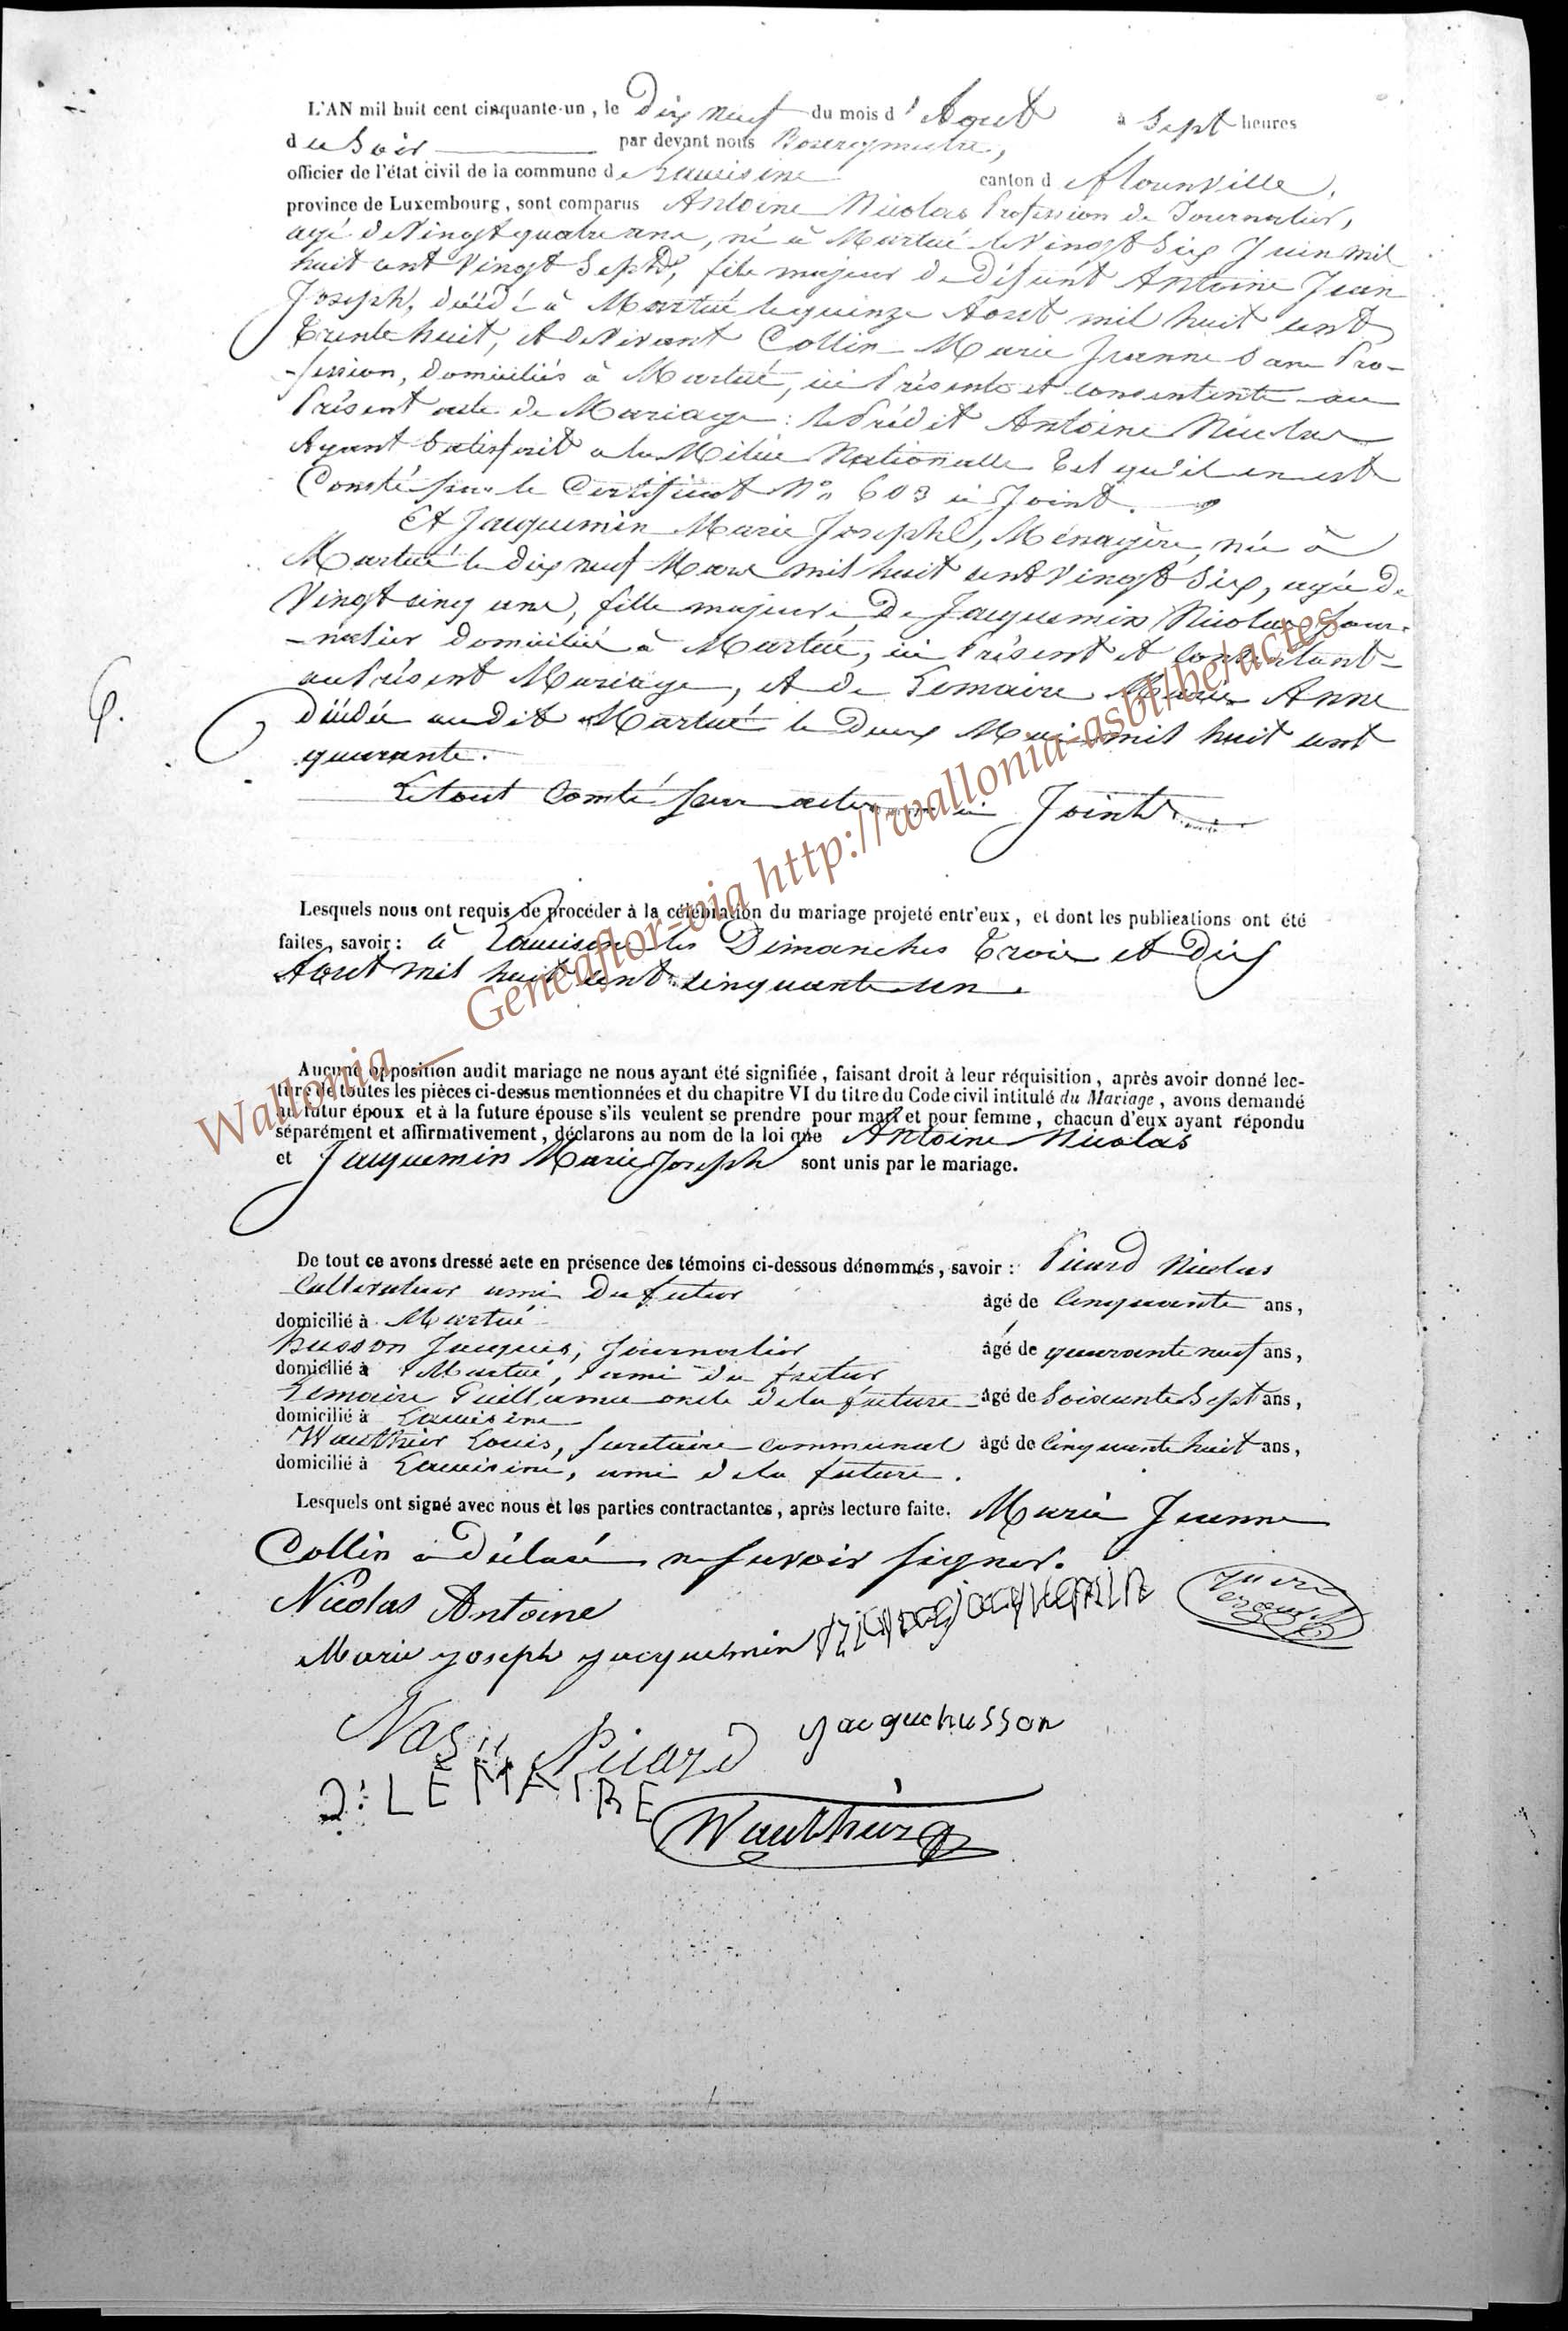 L'AN mil huit cent cinquante-un, le Dix neuf du mois d'Aout à Sept heures
du Soir par devant nous Bourgmestre,
officier de l'état civil de la commune de Lacuisine canton de Florenville,
province de Luxembourg, sont comparus Antoine Nicolas Profession de Journalier,
agé de Vingt quatre ans, né à Martué le Vingt Six Juin mil
huit cent Vingt Sept, fils majeur de Défunt Antoine Jean
Joseph, décédé à Martué le quinze Aout mil huit cent
Trente huit, et de Vivant Collin Marie Jeanne Sans Pro-
fession, domiciliés à Martué, ici Présente et consentente au
Présent acte de Mariage: le Prédit Antoine Nicolas
Ayant Satisfait a la Milice Nationalle tel qu'il en est
Consté par le Certificat N° 603 ci Joint.
Et Jacquemin Marie Joseph, Ménagère, née à
Martué le dix neuf Mars mil huit cent Vingt Six, agée De
Vingt cinq ans, fille majeure De Jacquemin Nicolas Jour-
-nalier domicilié à Martué, ici Présent et Consentant
au Présent Mariage, et de Lemaire Marie Anne
Décédée audit Martué le Deux Mai mil huit cent
quarante.
Le tout Consté par actes ci Joints
6.
Lesquels nous ont requis de procéder à la célébration du mariage projeté entr'eux, et dont les publications ont été
faites, savoir: à Lacuisine les Dimanches Trois et Dix
Aout mil huit cent cinquante un.
Aucune opposition audit mariage ne nous ayant été signifiée, faisant droit à leur réquisition, après avoir donné lec-
ture de toutes les pièces ci-dessus mentionnées et du chapitre VI du titre du Code civil intitulé du Mariage, avons demandé
au futur époux et à la future épouse s'ils veulent se prendre pour mari et pour femme, chacun d'eux ayant répondu
séparément et affirmativement, déclarons au nom de la loi que Antoine Nicolas
et Jacquemin Marie Joseph sont unis par le mariage.
De tout ce avons dressé acte en présence des témoins ci-dessous dénommés, savoir: Picard Nicolas
Cultivateur ami Du futur âgé de Cinquante ans,
domicilié à Martué
Husson Jacques, Journalier âgé de quarante neuf ans,
domicilié à Martué, ami du futur
Lemaire Guillaume oncle de la future âgé de Soixante Sept ans,
domicilié à Lacuisine
Wauthier Louis, Secretaire communal âgé de Cinquante huit ans,
domicilié à Lacuisine, ami de la future.
Lesquels ont signé avec nous et les parties contractantes, après lecture faite. Marie Jeanne
Collin a Déclaré ne Savoir Signer.
Nicolas Antoine
Marie Joseph Jacquemin Nicolas Jacquemin
Picard Jaque husson
LEMAIRE
Wauthier
Wallonia - Geneaflor-oia http://wallonia-asbl/be/actes